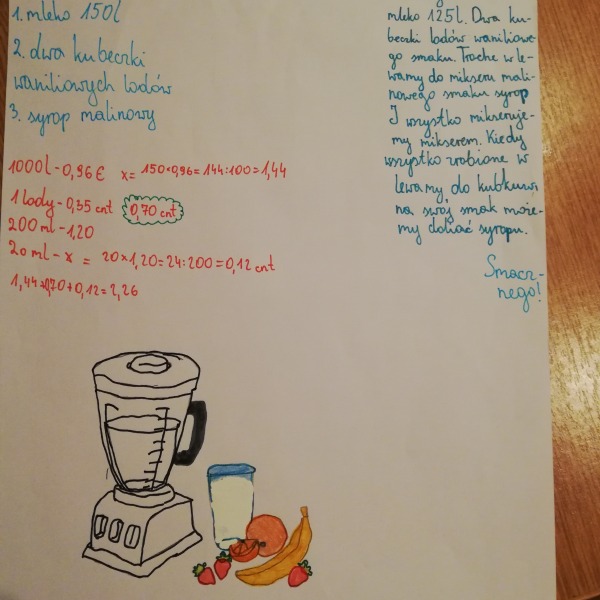 1. mleko 150l
2. dwa kubeczki
waniliowych lodów
3. syrop malinowy
1000l - 0,96 € x = 150×0,96 = 144:100 = 1,44
1 lody - 0,35 cnt 0,70 cnt
200 ml - 1,20
20 ml - x = 20×1,20 = 24:200 = 0,12 cnt
1,44+0,70+0,12=2,26
mleko 125l. Dwa ku-
beczki lodów waniliowe-
go smaku. Troche wle-
wamy do mikseru mali-
nowego smaku syrop
I wszystko mikseruje-
my mikserem. Kiedy
wszystko zrobione w
lewamy do kubkuwi
na swój smak może-
my doliać syropu.
Smacz-
nego!